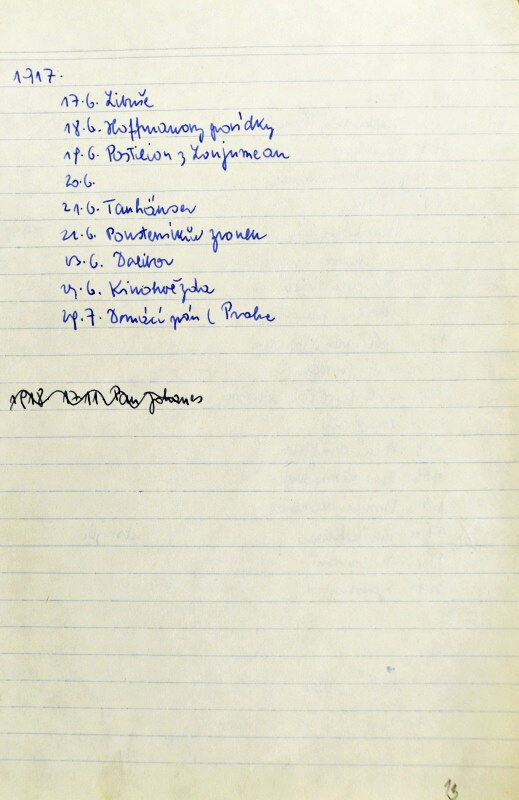 1917.
17.6. Libuše
18.6. Hoffmanovy povídky
19.6. Postilion z Lonjumeau
20.6.
21.6. Tanhäuser
22.6. Poustevníkův zvonek
23.6. Dalibor
24.6. Kinohvězda
29.7. Domácí pán ( Praha
1918 17.11. Pan Johanes
13